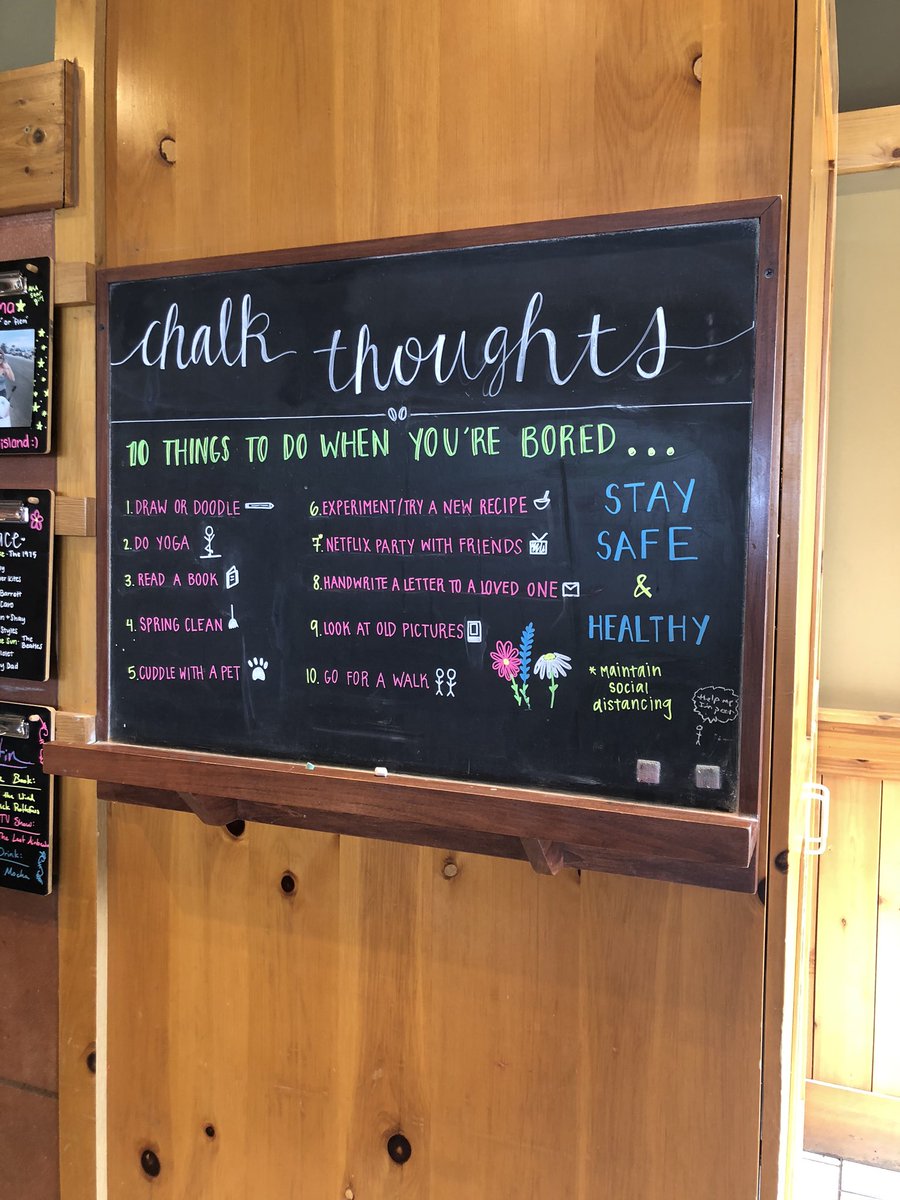 chalk thoughts
10 THINGS TO DO WHEN YOU'RE BORED...
1. DRAW OR DOODLE
2. DO YOGA
3. READ A BOOK
4. SPRING CLEAN
5. CUDDLE WITH A PET
6. EXPERIMENT/TRY A NEW RECIPE
7. NETFLIX PARTY WITH FRIENDS
8. HANDWRITE A LETTER TO A LOVED ONE
9. LOOK AT OLD PICTURES
10. GO FOR A WALK
STAY
SAFE
&
HEALTHY
* Maintain
social
distancing
Help me
I'm poor
island :)
- The 1975
Barrett
Styles
The Beatles
Dad
Book:
the Wind
TV Show:
The Last
Drink:
Mocha